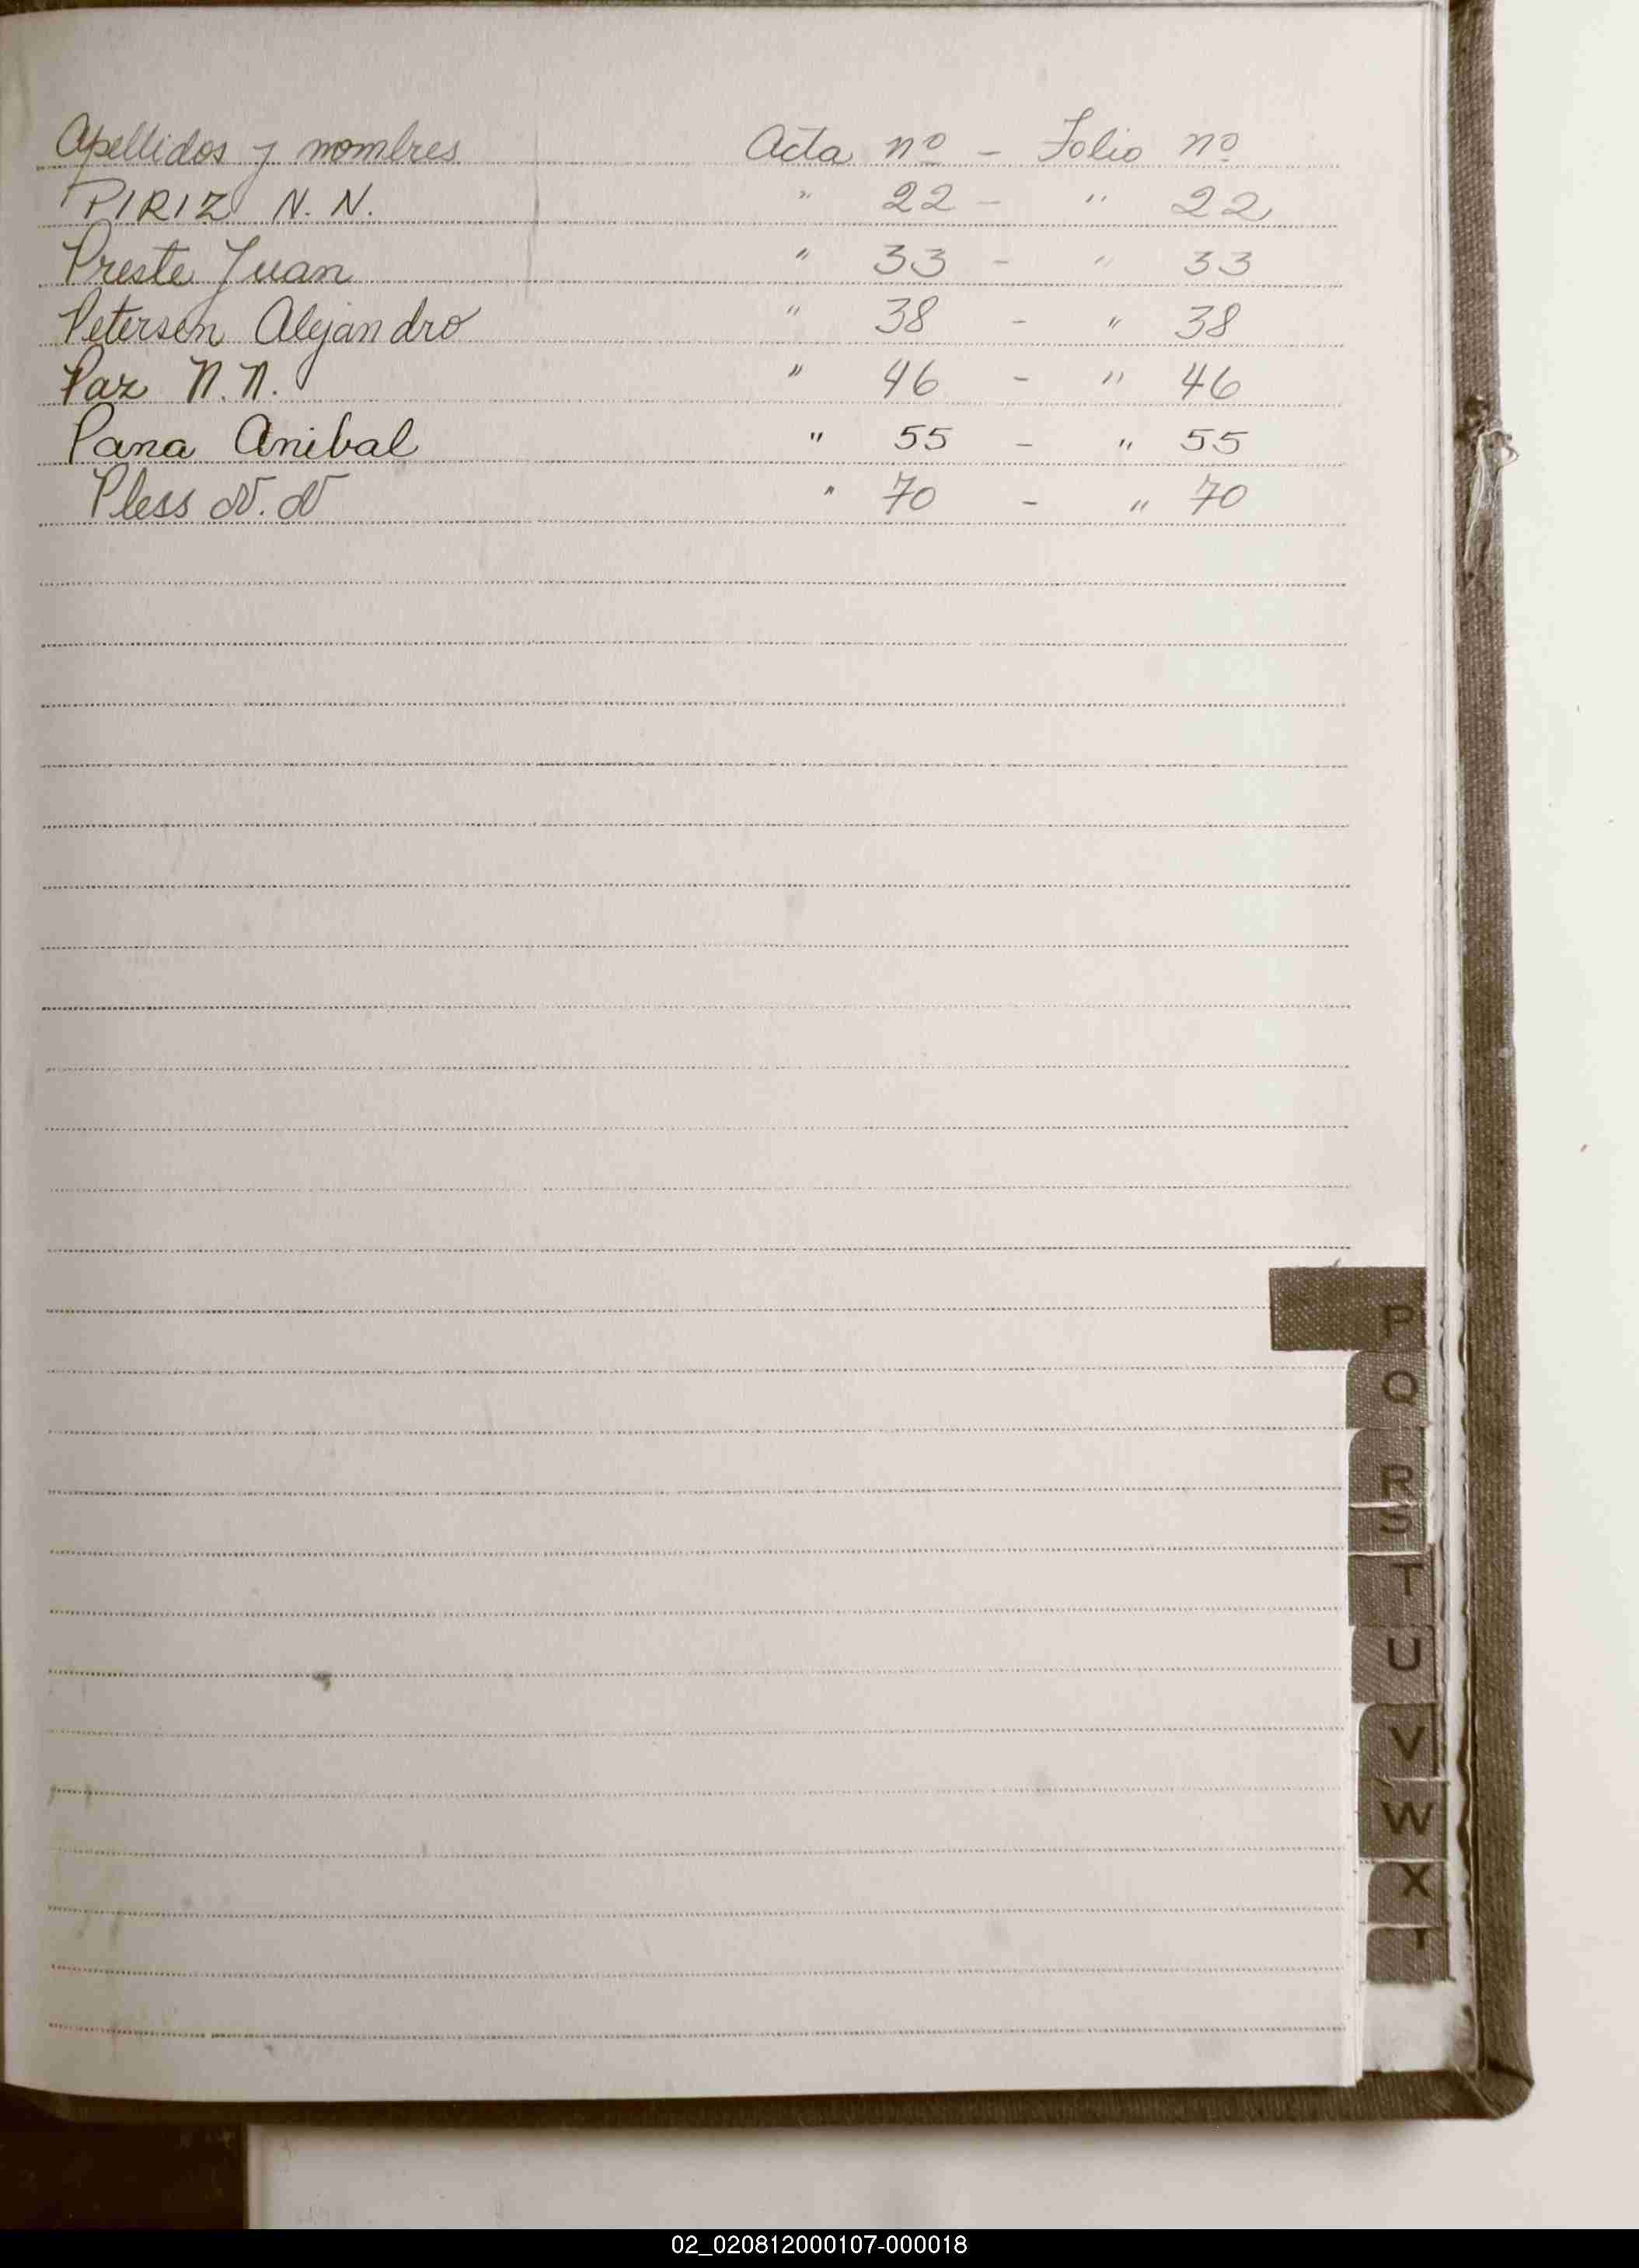 Apellidos y nombres Acta nº - Folio nº
PIRIZ N. N. " 22 - " 22
Preste Juan " 33 - " 33
Petersen Alejandro " 38 - " 38
Paz N. N. " 46 - " 46
Pana Anibal " 55 - " 55
Pless N. N " 70 - " 70
P
Q
R
S
T
U
V
W
X
02_020812000107-000018